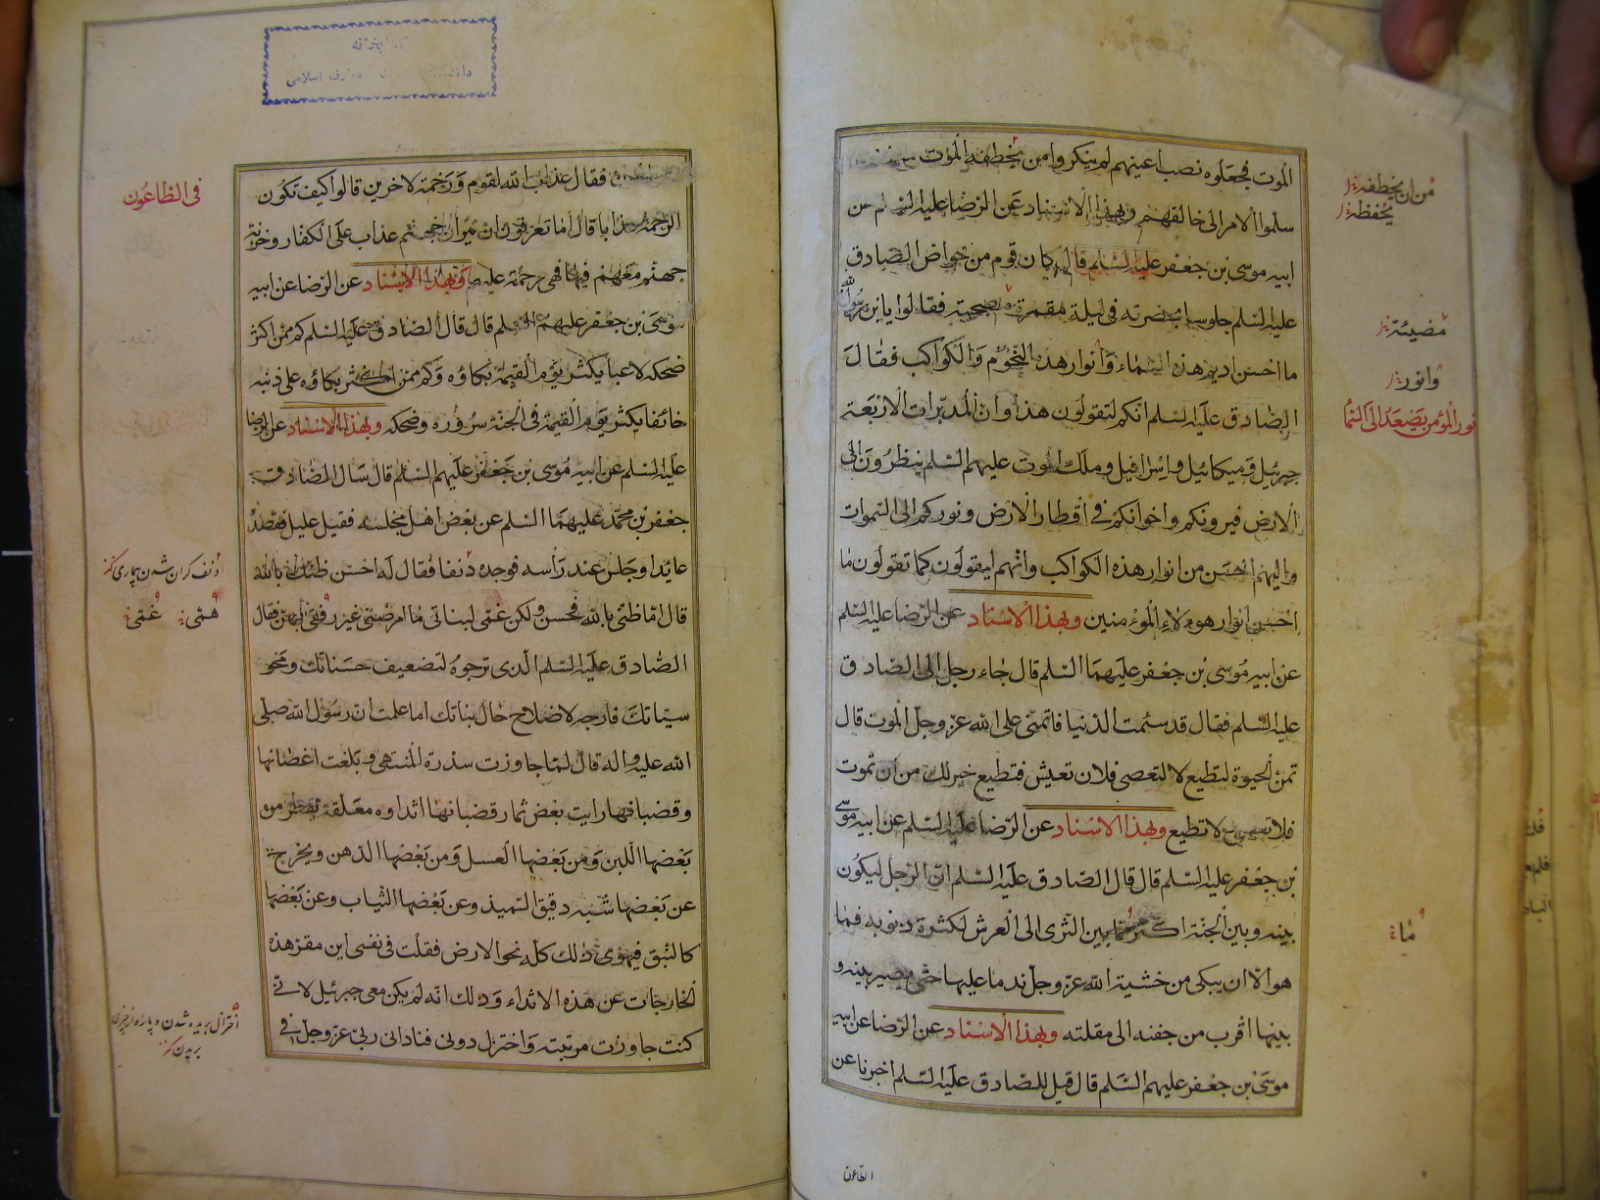 الموت فجعلوه نصب اعينهم لم ينكروا من يخطفه الموت
سلموا الامر الى خالقهم وبهذا الاسناد عن الرضا عليه السلم عن
ابيه موسى بن جعفر عليه السلم قال كان قوم من خواص الصادق
عليه السلم جلوسا بحضرته فى ليلة مقمرة مصحية فقالوا يابن رسول الله
ما احسن اديم هذه السماء وانوار هذه النجوم والكواكب فقال
الصادق عليه السلم انكم لتقولون هذا وان المدبرات الاربعة
جبرئيل وميكائيل واسرافيل وملك الموت عليهم السلم ينظرون الى
الارض فيرونكم واخوانكم فى اقطار الارض ونوركم الى السموات
واليهم احسن من انوار هذه الكواكب وانهم ليقولون كما تقولون ما
احسن انوار هولاء المؤمنين وبهذا الاسناد عن الرضا عليه السلم
عن ابيه موسى بن جعفر عليهما السلم قال جاء رجل الى الصادق
عليه السلم فقال قد سئمت الدنيا فاتمنى على الله عز وجل الموت قال
تمن الحيوة لتطيع لا لتعصى فلان تعيش فتطيع خير لك من ان تموت
فلا تعصى ولا تطيع وبهذا الاسناد عن الرضا عليه السلم عن ابيه موسى
بن جعفر عليه السلم قال قال الصادق عليه السلم ان الرجل ليكون
بينه وبين الجنة اكثر مما بين الثرى الى العرش لكثرة ذنوبه فما
هو الا ان يبكى من خشية الله عز وجل ندما عليها حتى يصير بينه و
بينها اقرب من جفنه الى مقلته وبهذا الاسناد عن الرضا عن ابيه
موسى بن جعفر عليهم السلم قال قيل للصادق عليه السلم اخبرنا عن
الطاعون
من ان يخطفه
يحفظه
مضيئة
وانور
نور المؤمن يصعد الى السماء
ماة
فقال عذاب الله لقوم ورحمة لاخرين قالوا كيف تكون
الرحمة عذابا قال اما تعرفون ان نيران جهنم عذاب على الكفار وخزنة
جهنم معهم فيها فهى رحمة عليهم وبهذا الاسناد عن الرضا عن ابيه
موسى بن جعفر عليهم السلم قال قال الصادق عليه السلم كم ممن اكثر
ضحكه لاعبا يكثر يوم القيمة بكاؤه وكم ممن اكثر بكاؤه على ذنبه
خائفا يكثر يوم القيمة فى الجنة سروره وضحكه وبهذا الاسناد عن الرضا
عليه السلم عن ابيه موسى بن جعفر عليهم السلم قال سال الصادق
جعفر بن محمد عليهما السلم عن بعض اهل مجلسه فقيل عليل فقصده
عائدا وجلس عند راسه فوجده دنفا فقال له احسن ظنك بالله
قال اما ظنى بالله فحسن ولكن غمى لبناتى ما امرضنى غير رفقى بهن فقال
الصادق عليه السلم الذى ترجوه لتضعيف حسناتك ومحو
سيئاتك فارجه لاصلاح حال بناتك اما علمت ان رسول الله صلى
الله عليه واله قال لما جاوزت سدرة المنتهى وبلغت اغصانها
وقضبانها رايت بعض ثمار قضبانها اثداوه معلقة يقطر من
بعضها اللبن ومن بعضها العسل ومن بعضها الدهن ويخرج
عن بعضها شبه دقيق السميذ وعن بعضها الثياب وعن بعضها
كالنبق فيهوى ذلك كله نحو الارض فقلت فى نفسى اين مقر هذه
الخارجات عن هذه الاثداء وذلك انه لم يكن معى جبرئيل لانى
كنت جاوزت مرتبته واختزل دونى فنادانى ربى عز وجل فى
فى الطاعون
دنف گران شدن بیماری کنز
همى غمى
اختزال بریده شدن و پاره از چیزی
بریدن کنز
کتابخانه
معارف اسلامی